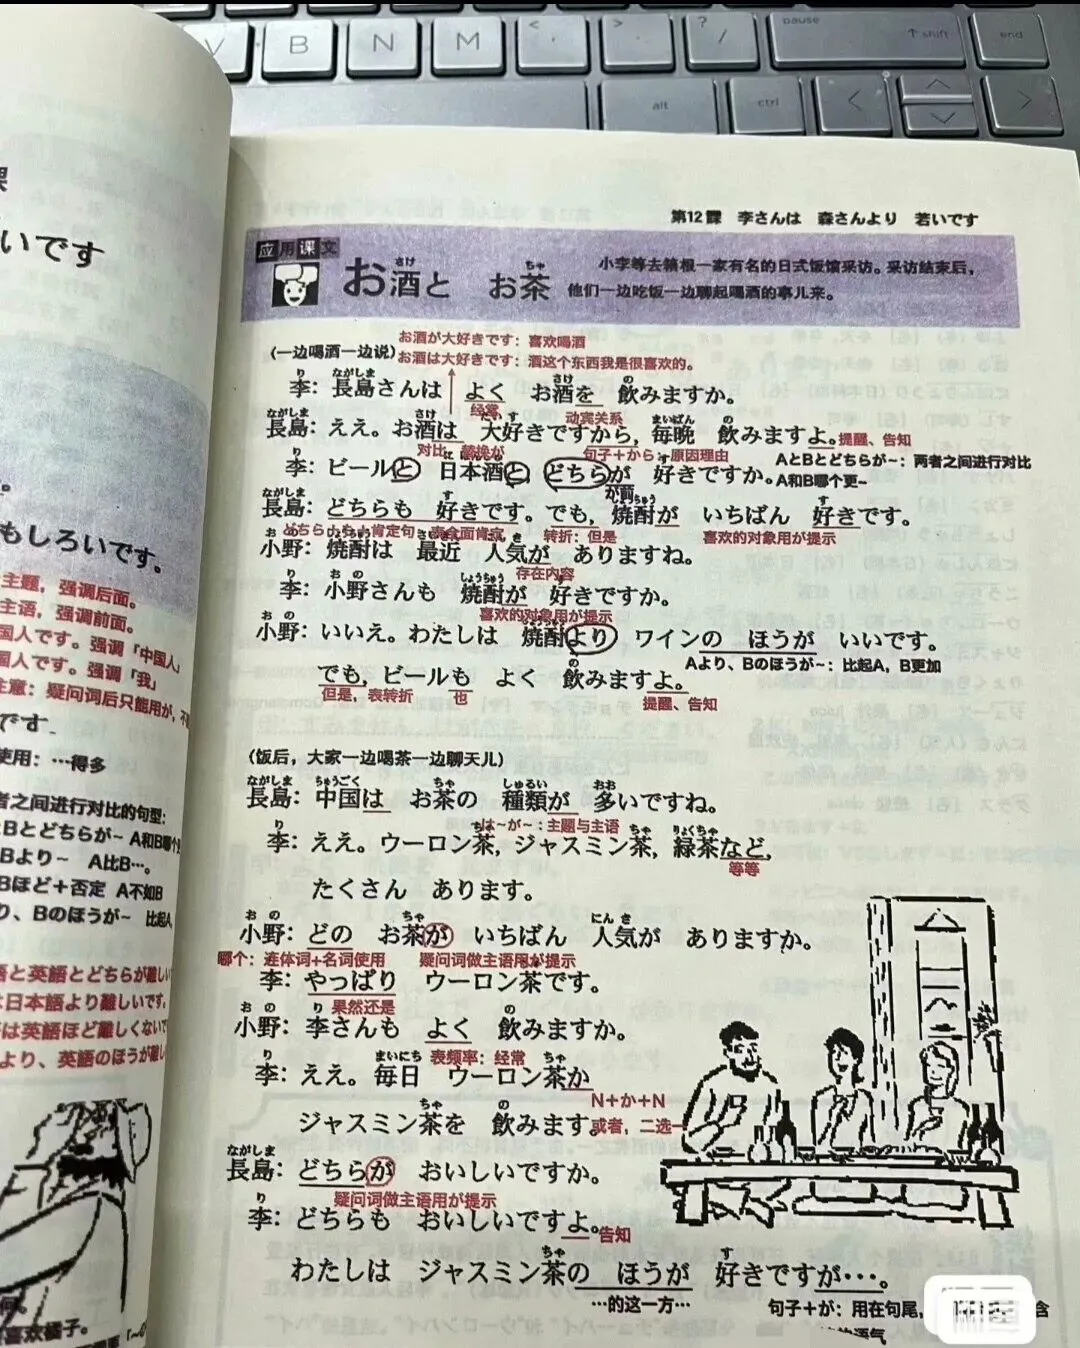 V B N M < > ? / pause ↑ shift end
alt ctrl < ^ >
课
いです
もしろいです。
主题，强调后面。
主语，强调前面。
国人です。强调「中国人」
国人です。强调「我」
注意：疑问词后只能用が，不
です
使用：…得多
者之间进行对比的句型：
とBとどちらが～ A和B哪个
Bより～ A比B…。
Bほど＋否定 A不如B
り、Bのほうが～ 比起A,
語と英語とどちらが難しい
は日本語より難しいです。
は英語ほど難しくない
より、英語のほうが難し
喜欢橘子。
第12課 李さんは 森さんより 若いです
应用课文
さけ ちゃ
お酒と お茶
小李等去箱根一家有名的日式饭馆采访。采访结束后，
他们一边吃饭一边聊起喝酒的事儿来。
お酒が大好きです：喜欢喝酒
(一边喝酒一边说) お酒は大好きです：酒这个东西我是很喜欢的。
り ながしま さけ の
李：長島さんは よく お酒を 飲みますか。
经常 动宾关系
ながしま さけ だいす まいばん の
長島：ええ。お酒は 大好きですから，毎晩 飲みますよ。提醒、告知
对比 替换が 句子＋から：原因理由
AとBとどちらが～：两者之间进行对比
り す
李：ビールと 日本酒と どちらが 好きですか。A和B哪个更~
ながしま す しょうちゅう す
長島：どちらも 好きです。でも，焼酎が いちばん 好きです。
どちら＋も＋肯定句：表全面肯定 转折：但是 喜欢的对象用が提示
小野：焼酎は 最近 人気が ありますね。
存在内容
り おの しょうちゅう す
李：小野さんも 焼酎が 好きですか。
喜欢的对象用が提示
おの
小野：いいえ。わたしは 焼酎より ワインの ほうが いいです。
Aより、Bのほうが～：比起A，B更加
の
でも，ビールも よく 飲みますよ。
但是，表转折 也 提醒、告知
(饭后，大家一边喝茶一边聊天儿)
ながしま ちゅうごく ちゃ しゅるい おお
長島：中国は お茶の 種類が 多いですね。
は～が～：主题与主语
り ちゃ ちゃ りょくちゃ
李：ええ。ウーロン茶，ジャスミン茶，緑茶など，
等等
たくさん あります。
おの ちゃ にんき
小野：どの お茶が いちばん 人気が ありますか。
哪个：连体词+名词使用 疑问词做主语用が提示
李：やっぱり ウーロン茶です。
果然还是
おの り の
小野：李さんも よく 飲みますか。
表频率：经常
り まいにち ちゃ
李：ええ。毎日 ウーロン茶か
N＋か＋N
ちゃ の
ジャスミン茶を 飲みます。或者，二选一
ながしま
長島：どちらが おいしいですか。
疑问词做主语用が提示
り
李：どちらも おいしいですよ。告知
ちゃ す
わたしは ジャスミン茶の ほうが 好きですが…。
…的这一方… 句子＋が：用在句尾，